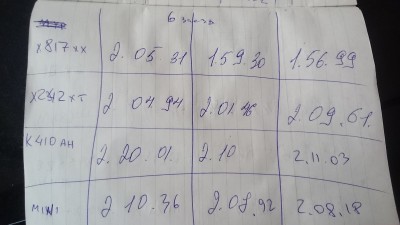 6 заезд
х817хх 2.05 31 1.59.30 1.56.99
х242хт 2 04.94 2.01.46 2.09.61.
К410ан 2.20.01. 2.10 2.11.03
2 10.36 2.08.92 2.08.18